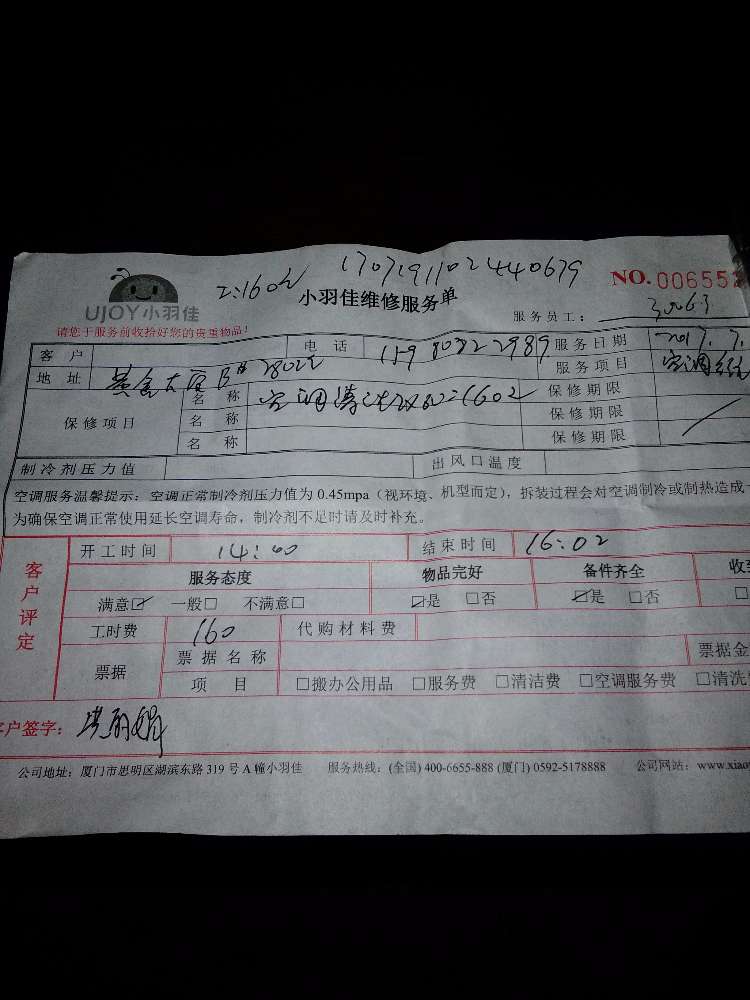 1707191102440679
UJOY小羽佳
小羽佳维修服务单
NO.006552
请您于服务前收拾好您的贵重物品！
服务员工：
客 户
电 话
服务日期
地 址
服务项目
保修项目
名 称
保修期限
名 称
保修期限
名 称
保修期限
制冷剂压力值
出风口温度
空调服务温馨提示：空调正常制冷剂压力值为 0.45mpa（视环境、机型而定），拆装过程会对空调制冷或制热造成
为确保空调正常使用延长空调寿命，制冷剂不足时请及时补充。
客户评定
开工时间 14:00 结束时间 16:02
服务态度 物品完好 备件齐全 收
满意☑ 一般□ 不满意□ ☑是 □否 ☑是 □否 □
工时费 160 代购材料费
票据
票据名称
票据金
项 目 □搬办公用品 □服务费 □清洁费 □空调服务费 □清洗
客户签字：
公司地址：厦门市思明区湖滨东路 319 号 A 幢小羽佳 服务热线：(全国) 400-6655-888 (厦门) 0592-5178888 公司网站：www.xiao